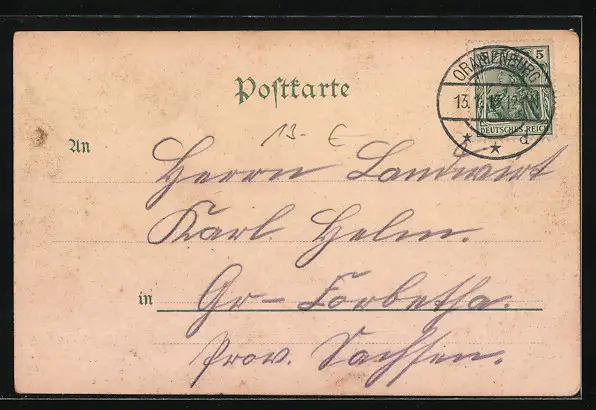 Postkarte
ORANIENBURG
5
DEUTSCHES REICH
13 - €
An
Herrn Landwirt
Karl Helm.
in Gr-Corbetha.
Prov. Sachsen.